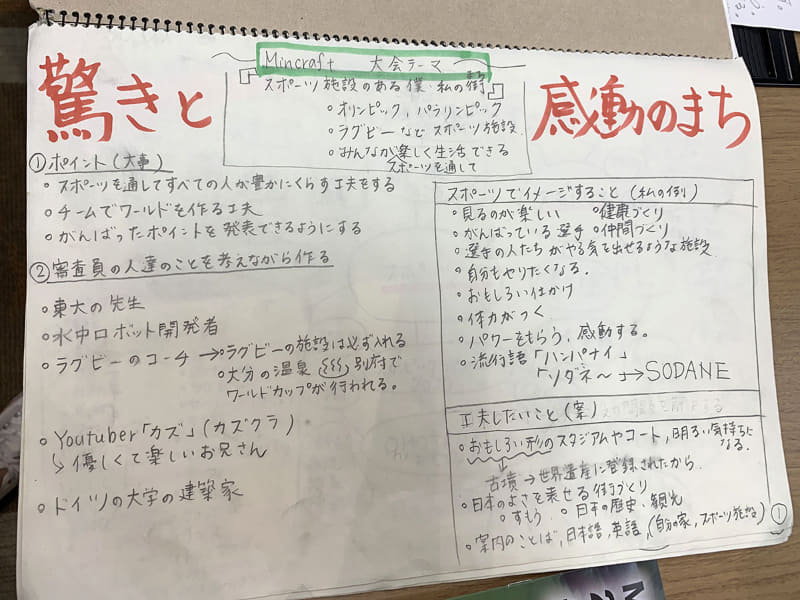 驚きと
感動のまち
Mincraft 大会テーマ
スポーツ施設のある僕・私の街
まち
・オリンピック、パラリンピック
・ラグビーなどスポーツ施設
・みんなが楽しく生活できる
スポーツを通して
①ポイント(大事)
・スポーツを通してすべての人が豊かにくらす工夫をする
・チームでワールドを作る工夫
・がんばったポイントを発表できるようにする
②審査員の人達のことを考えながら作る
・東大の先生
・水中ロボット開発者
・ラグビーのコーチ→ラグビーの施設は必ず入れる
・大分の温泉 別府で
ワールドカップが行われる。
・Youtuber「カズ」(カズクラ)
↳優しくて楽しいお兄さん
・ドイツの大学の建築家
スポーツでイメージすること(私の例)
・見るのが楽しい ・健康づくり
・がんばっている選手 ・仲間づくり
・選手の人たちがやる気を出せるような施設
・自分もやりたくなる.
・おもしろい仕かけ
・体力がつく
・パワーをもらう、感動する。
・流行語「ハンパナイ」
「ソダネ〜」→SODANE
工夫したいこと(案)
・おもしろい形のスタジアムやコート,明るい気持ちに
なる.
古墳→世界遺産に登録されたから.
・日本のよさを表せる街づくり
・すもう ・日本の歴史・観光
・案内のことば,日本語,英語,(自分の家,スポーツ施設)
①